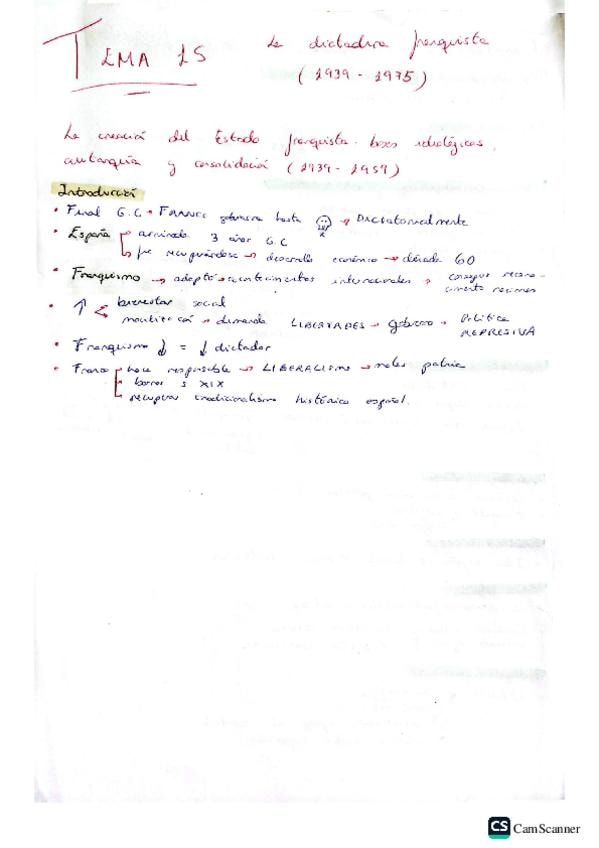 TEMA 15
La dictadura franquista
(1939 - 1975)
La creación del Estado franquista: bases ideológicas,
autarquía y consolidación (1939 - 1959)
Introducción
• Final G.C → Franco gobierna hasta → Dictatorialmente
• España arruinada 3 años G.C
fue recuperándose → desarrollo económico → década 60
• Franquismo → adaptó → acontecimientos internacionales → conseguir recono-
cimiento régimen
• ↑ bienestar social
demanda LIBERTADES → gobierno → Política
REPRESIVA
• Franquismo ↓ = ↓ dictador
• Franco hace responsable → LIBERALISMO → males patria
borrar s XIX
recuperar tradicionalismo histórico español.
CS CamScanner